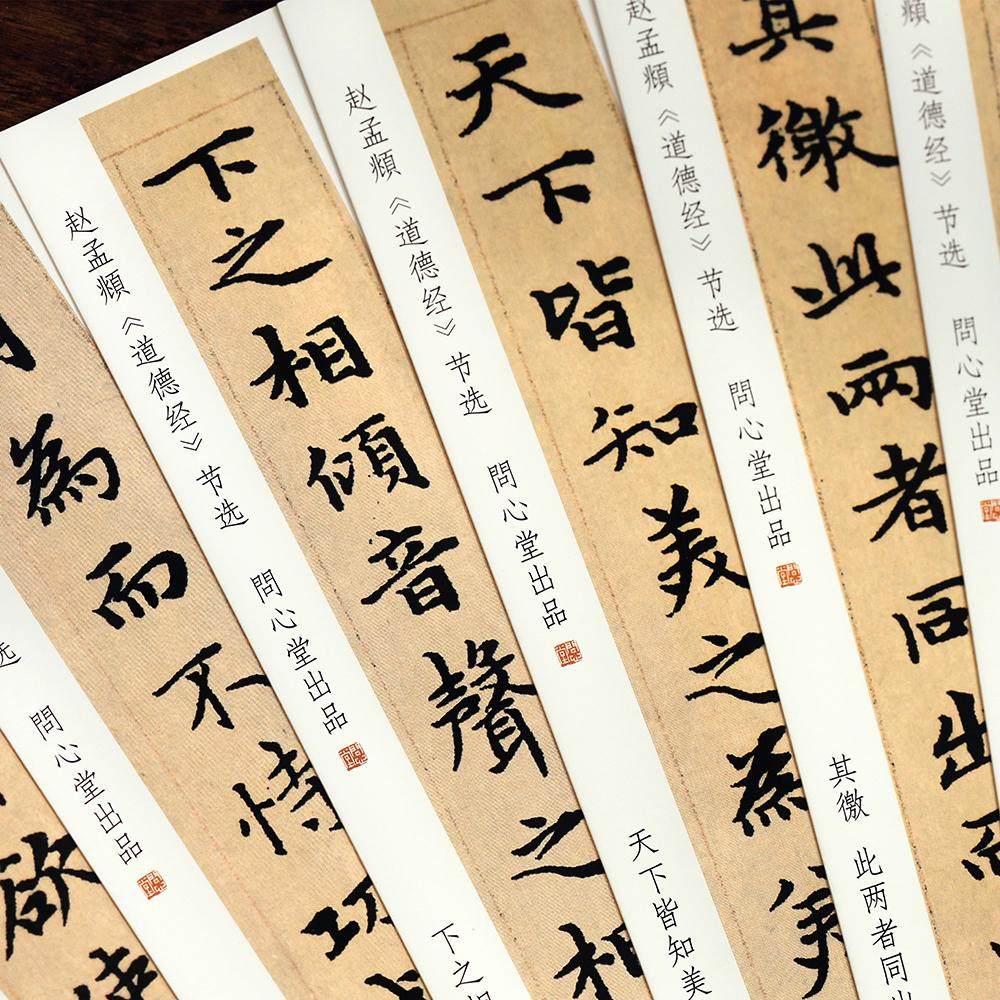 欲
选 問心堂出品
為而不恃功
赵孟頫《道德经》节选 問心堂出品
下之相
下之相傾音聲之相
赵孟頫《道德经》节选 問心堂出品
天下皆知美
天下皆知美之為美
赵孟頫《道德经》节选 問心堂出品
其徼 此两者同出
其徼此兩者同出而
頫《道德经》节选 問心堂出品